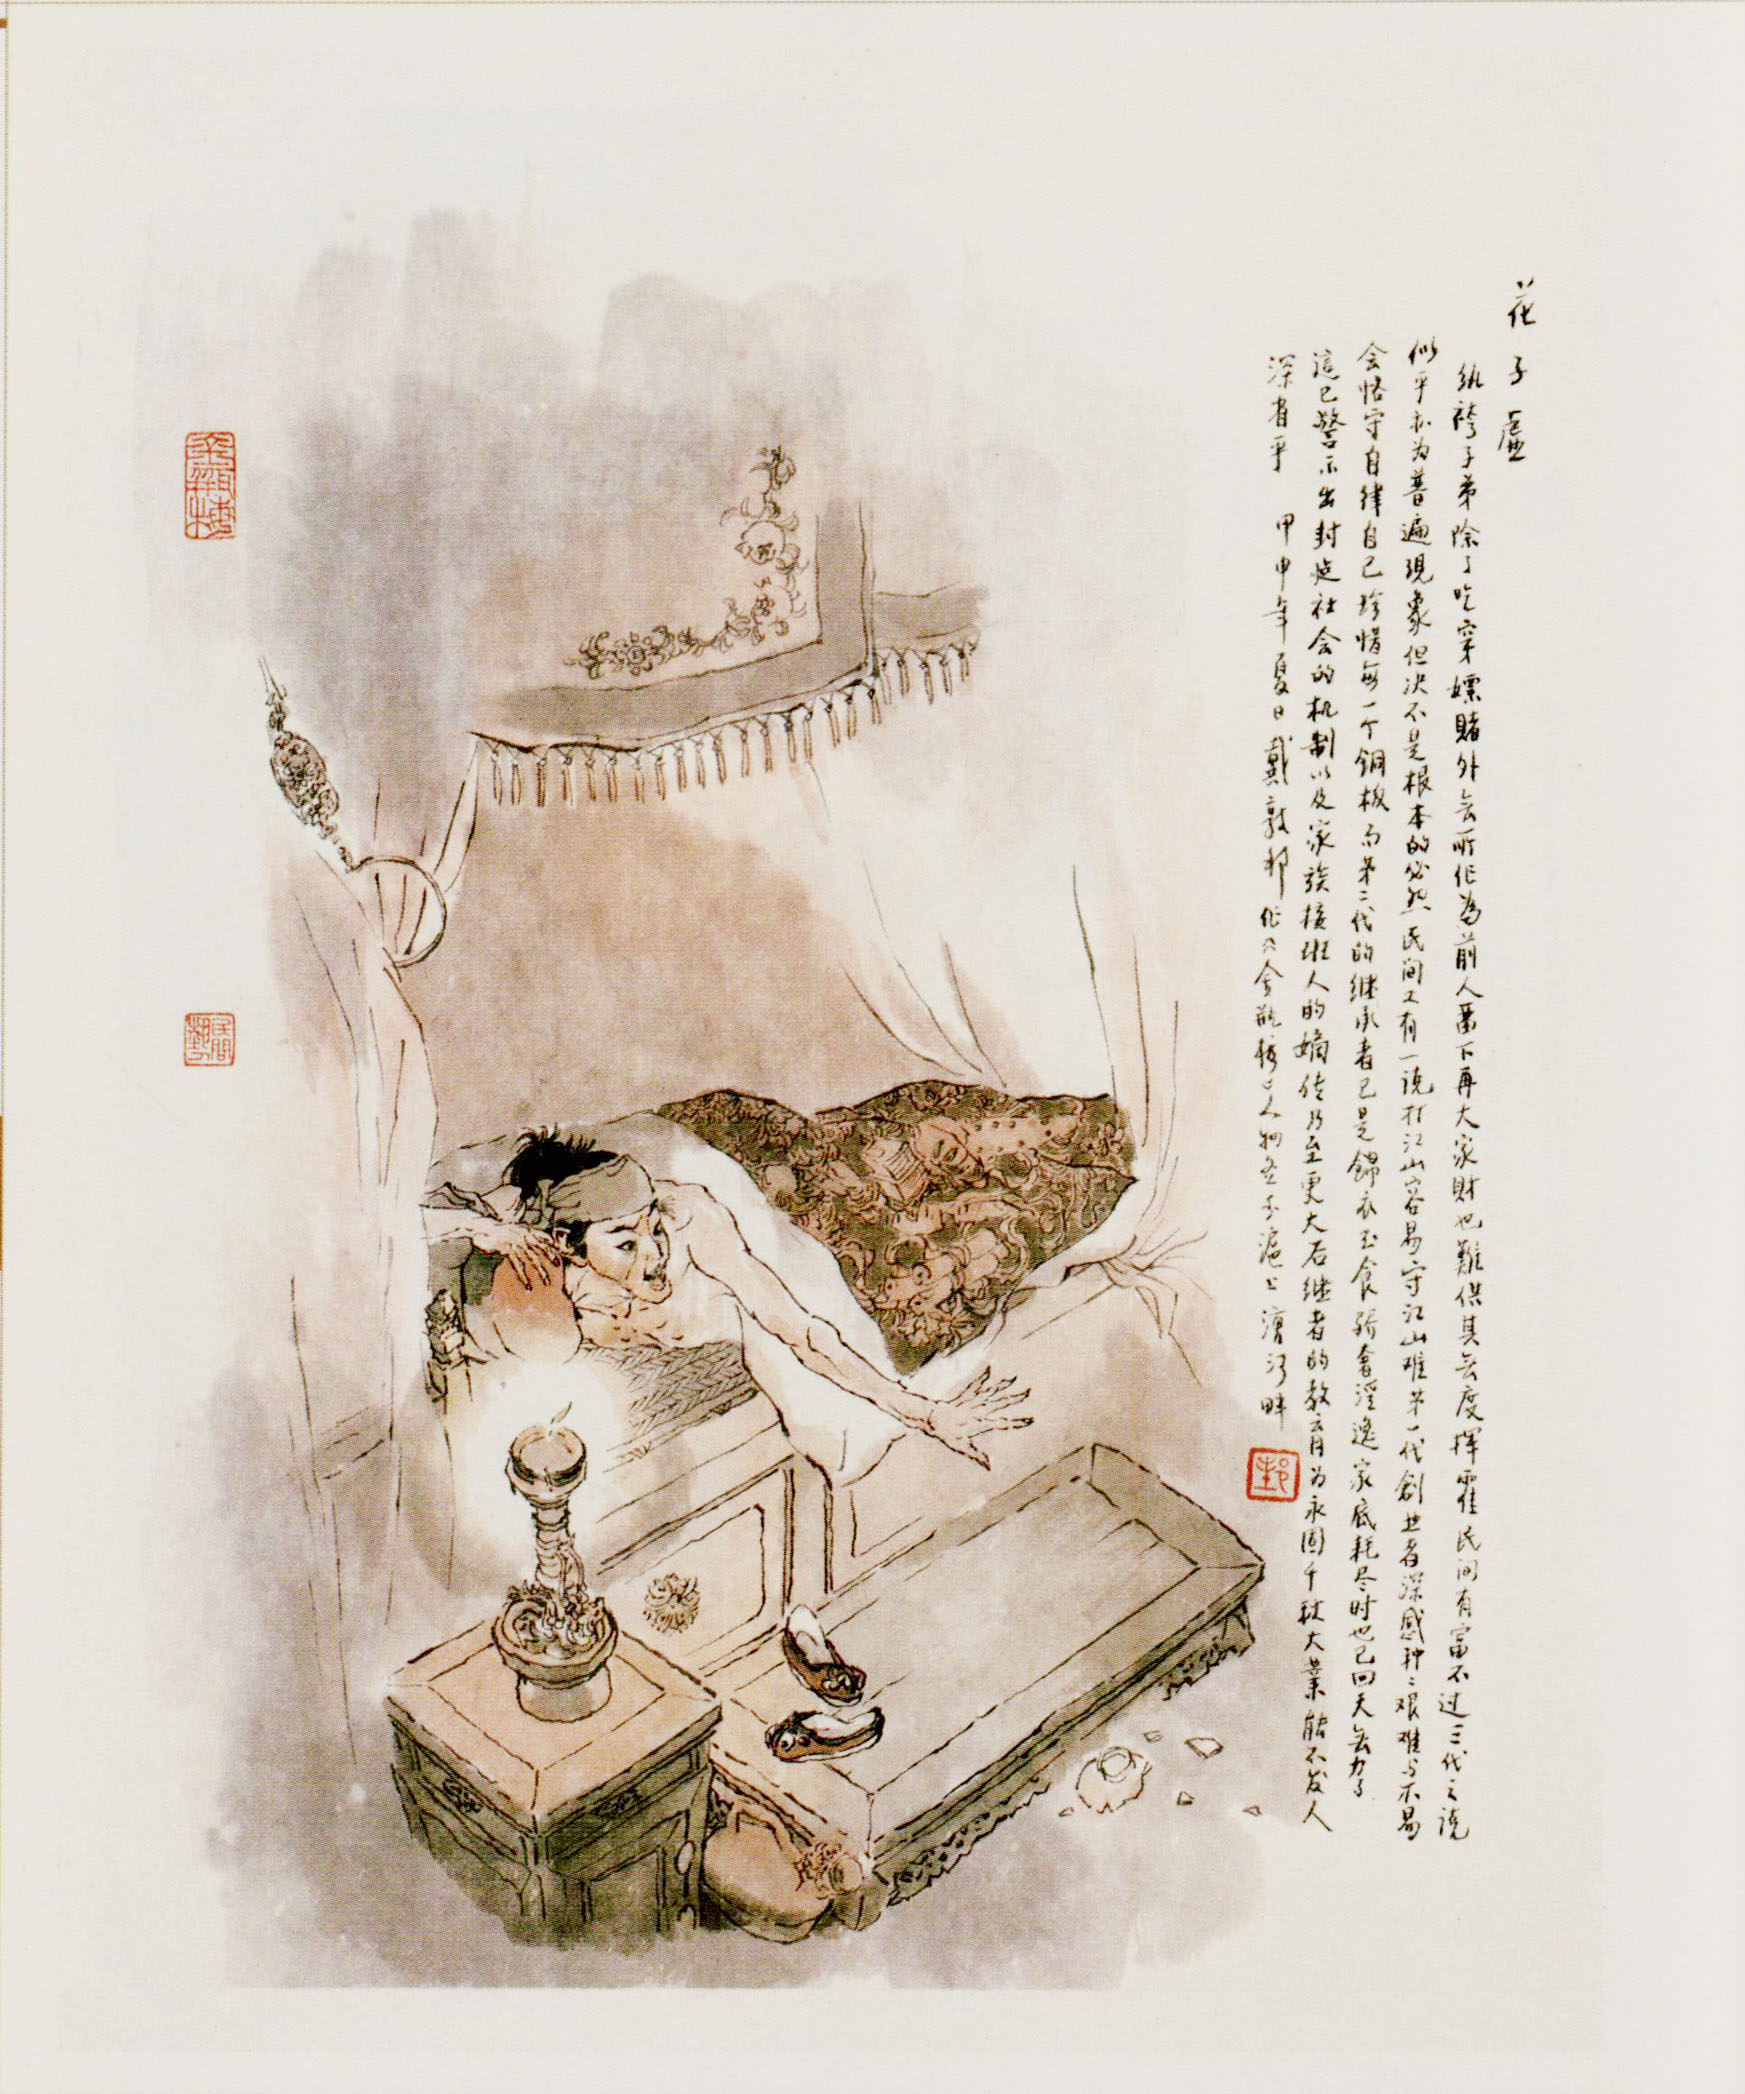 花子虛
纨袴子弟除了吃穿嫖賭外无所作為前人畱下再大家財也難供其无度揮霍民间有富不过三代之说
似乎亦为普遍現象但决不是根本的必然民间又有一说打江山容易守江山难第一代創业者深感种〻艰难与不易
会恪守自律自己珍惜每一个铜板而第三代的继承者已是錦衣玉食骄奢淫逸家底耗尽时也已回天无力了
這已警示出封建社会的机制以及家族接班人的嫡传乃至更大后继者的教育为永固千秋大業能不发人
深省乎 甲申年夏日戴敦邦作《金瓶梅》人物画于滬上漕河畔
民间
邦